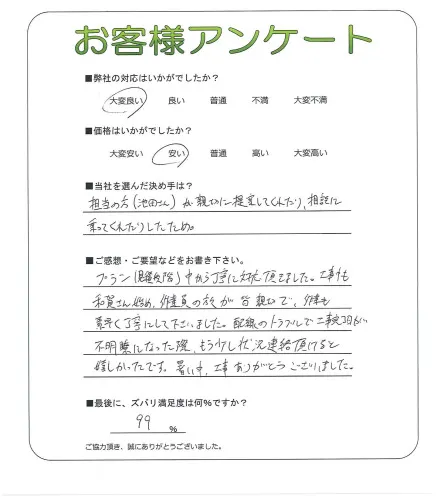 お客様アンケート
■弊社の対応はいかがでしたか？
大変良い 良い 普通 不満 大変不満
■価格はいかがでしたか？
大変安い 安い 普通 高い 大変高い
■当社を選んだ決め手は？
担当の方（池田さん）が親切に提案してくれたり、相談に
乗ってくれたりしたため。
■ご感想・ご要望などをお書き下さい。
プラン（見積段階）中から丁寧に対応頂けました。工事も
和賀さん始め、作業員の方が皆親切で、作業も
素早く丁寧にして下さいました。配線のトラブルで工事終了日が
不明瞭になった際、もう少し状況連絡頂けると
嬉しかったです。暑い中、工事ありがとうございました。
■最後に、ズバリ満足度は何%ですか？
99 %
ご協力頂き、誠にありがとうございました。